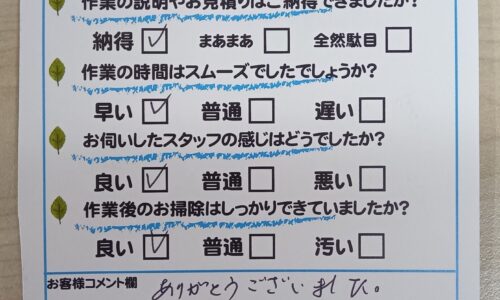 作業の説明やお見積りはご納得できましたか?
納得 ☑ まあまあ ☐ 全然駄目 ☐
作業の時間はスムーズでしたでしょうか?
早い ☑ 普通 ☐ 遅い ☐
お伺いしたスタッフの感じはどうでしたか?
良い ☑ 普通 ☐ 悪い ☐
作業後のお掃除はしっかりできていましたか?
良い ☑ 普通 ☐ 汚い ☐
お客様コメント欄 ありがとうございました。